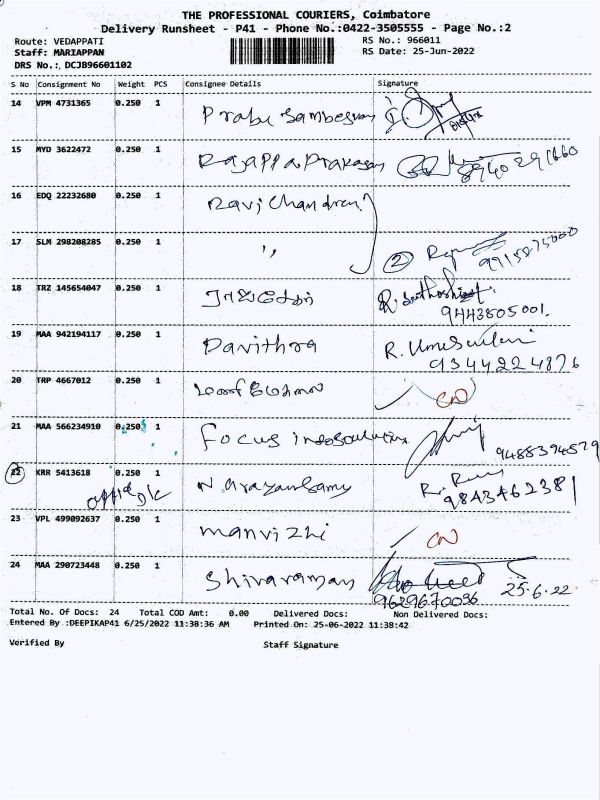 THE PROFESSIONAL COURIERS, Coimbatore
Delivery Runsheet - P41 - Phone No.:0422-3505555 - Page No.:2
Route: VEDAPPATI RS No.: 966011
Staff: MARIAPPAN RS Date: 25-Jun-2022
DRS No.: DCJB96601102
S No Consignment No Weight PCS Consignee Details Signature
14 VPM 4731365 0.250 1 Prabu Sambesvan
15 MYD 3622472 0.250 1 Rajappa Prakasan 8940291660
16 EDQ 22232680 0.250 1 Ravichandran
17 SLM 298208285 0.250 1 〃 2 9915875000
18 TRZ 145654047 0.250 1 ராஜசேகர் 9443805001.
19 MAA 942194117 0.250 1 Pavithra R. 9344224876
20 TRP 4667012 0.250 1 CN
21 MAA 566234910 0.250 1 Focus infosolution 9488394529
22 KRR 5413618 0.250 1 NarayanSamy 9843462381
23 VPL 499092637 0.250 1 manvizhi CN
24 MAA 290723448 0.250 1 Shivaraman 9629670036 25.6.22
Total No. Of Docs: 24 Total COD Amt: 0.00 Delivered Docs: Non Delivered Docs:
Entered By :DEEPIKAP41 6/25/2022 11:38:36 AM Printed On: 25-06-2022 11:38:42
Verified By Staff Signature